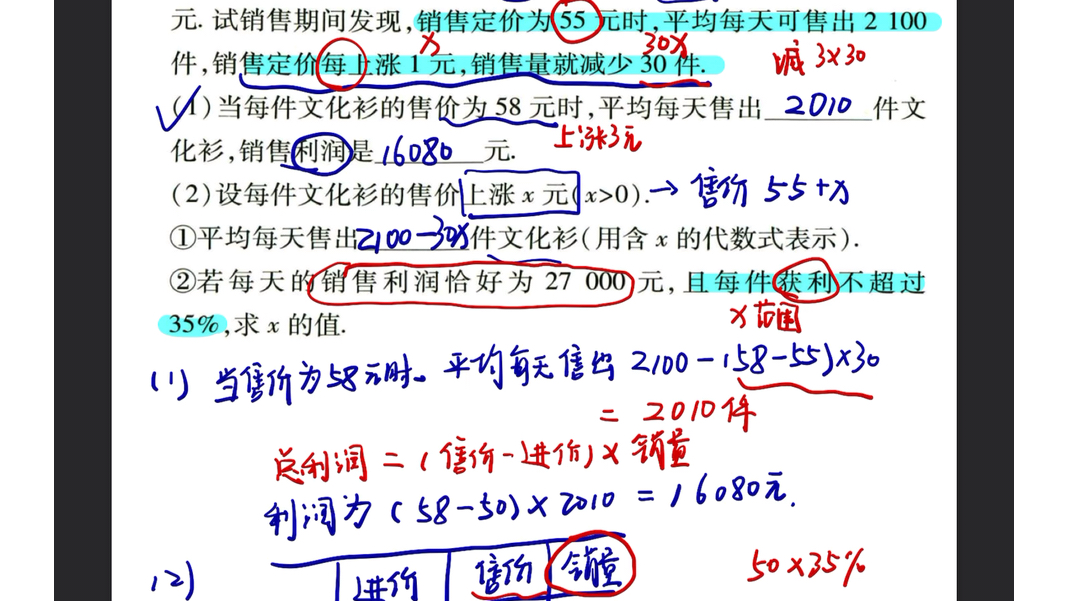 元. 试销售期间发现,销售定价为 55 元时,平均每天可售出 2 100
件,销售定价每上涨 1 元,销售量就减少 30 件.
x
30x
减 3×30
(1)当每件文化衫的售价为 58 元时,平均每天售出 2010 件文
化衫,销售利润是 16080 元.
上涨3元
(2)设每件文化衫的售价上涨 x 元(x>0). → 售价 55+x
①平均每天售出2100-30x件文化衫(用含 x 的代数式表示).
②若每天的销售利润恰好为 27 000 元,且每件获利不超过
35%,求 x 的值.
x 范围
(1) 当售价为58元时。平均每天售出 2100-(58-55)×30
= 2010件
总利润 = (售价-进价)× 销量
利润为 (58-50)×2010 = 16080元.
(2) 进价 售价 销量
50×35%